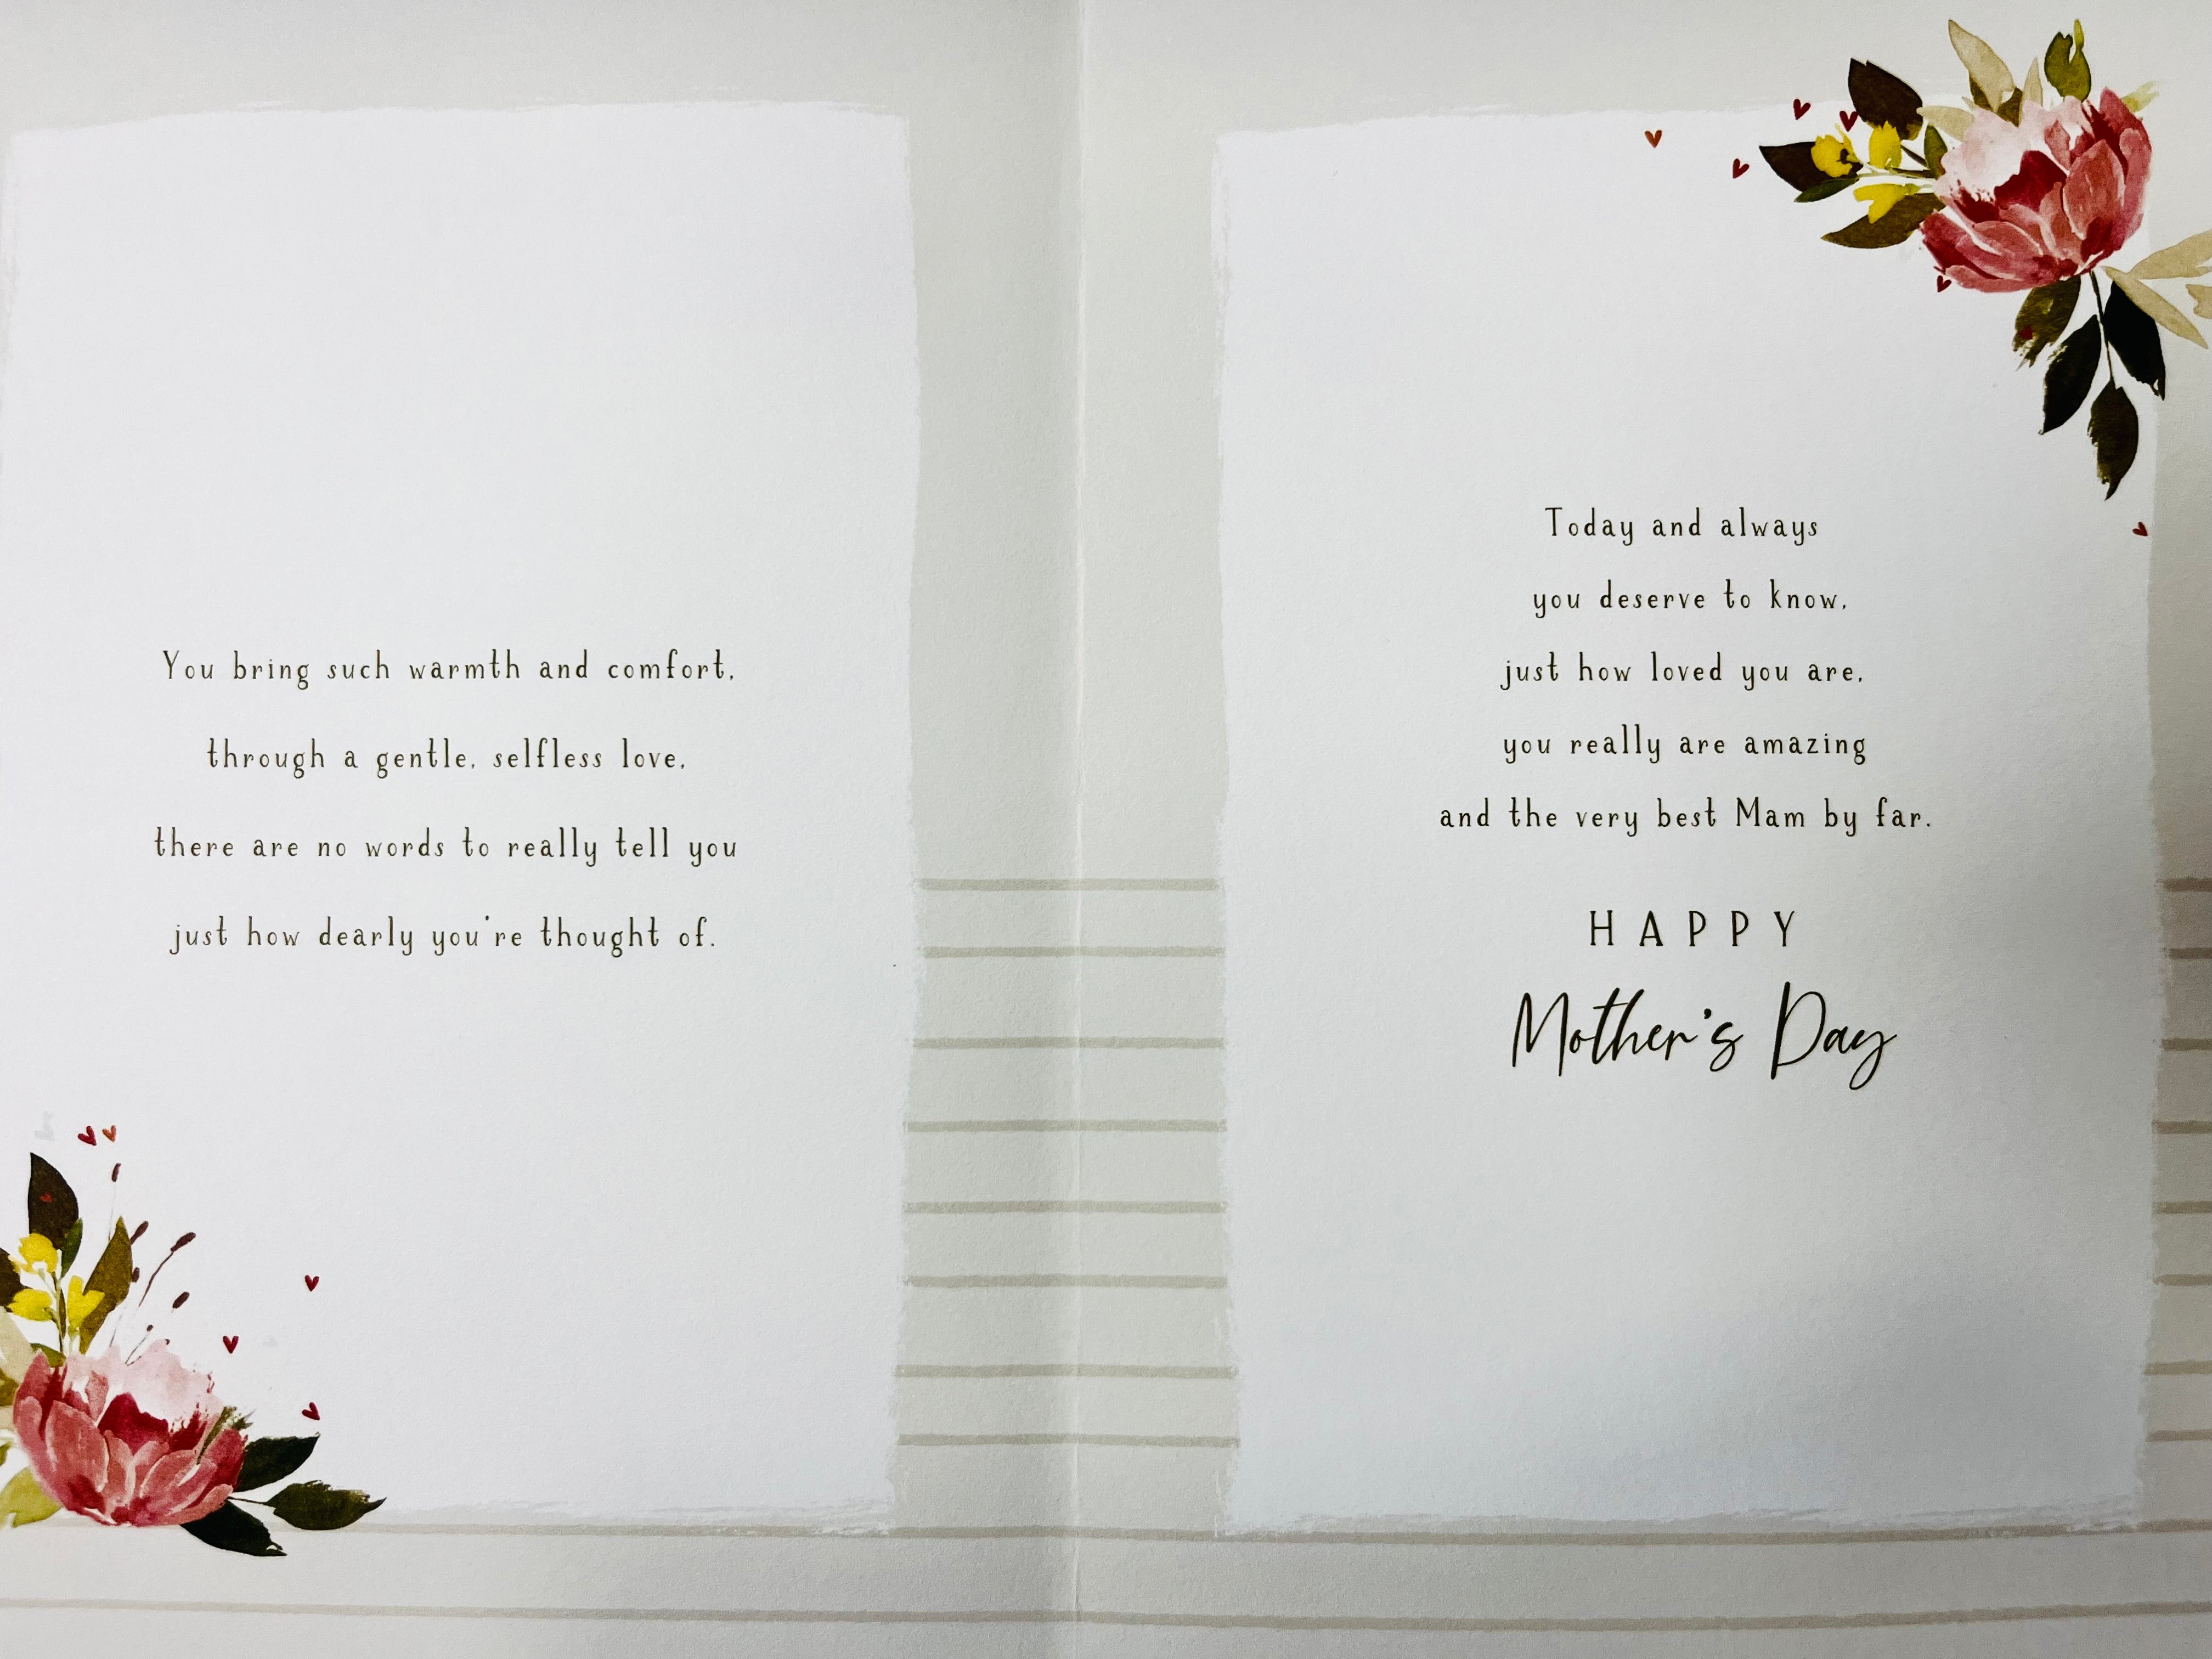 You bring such warmth and comfort,
through a gentle, selfless love,
there are no words to really tell you
just how dearly you're thought of.
Today and always
you deserve to know,
just how loved you are,
you really are amazing
and the very best Mam by far.
HAPPY
Mother's Day